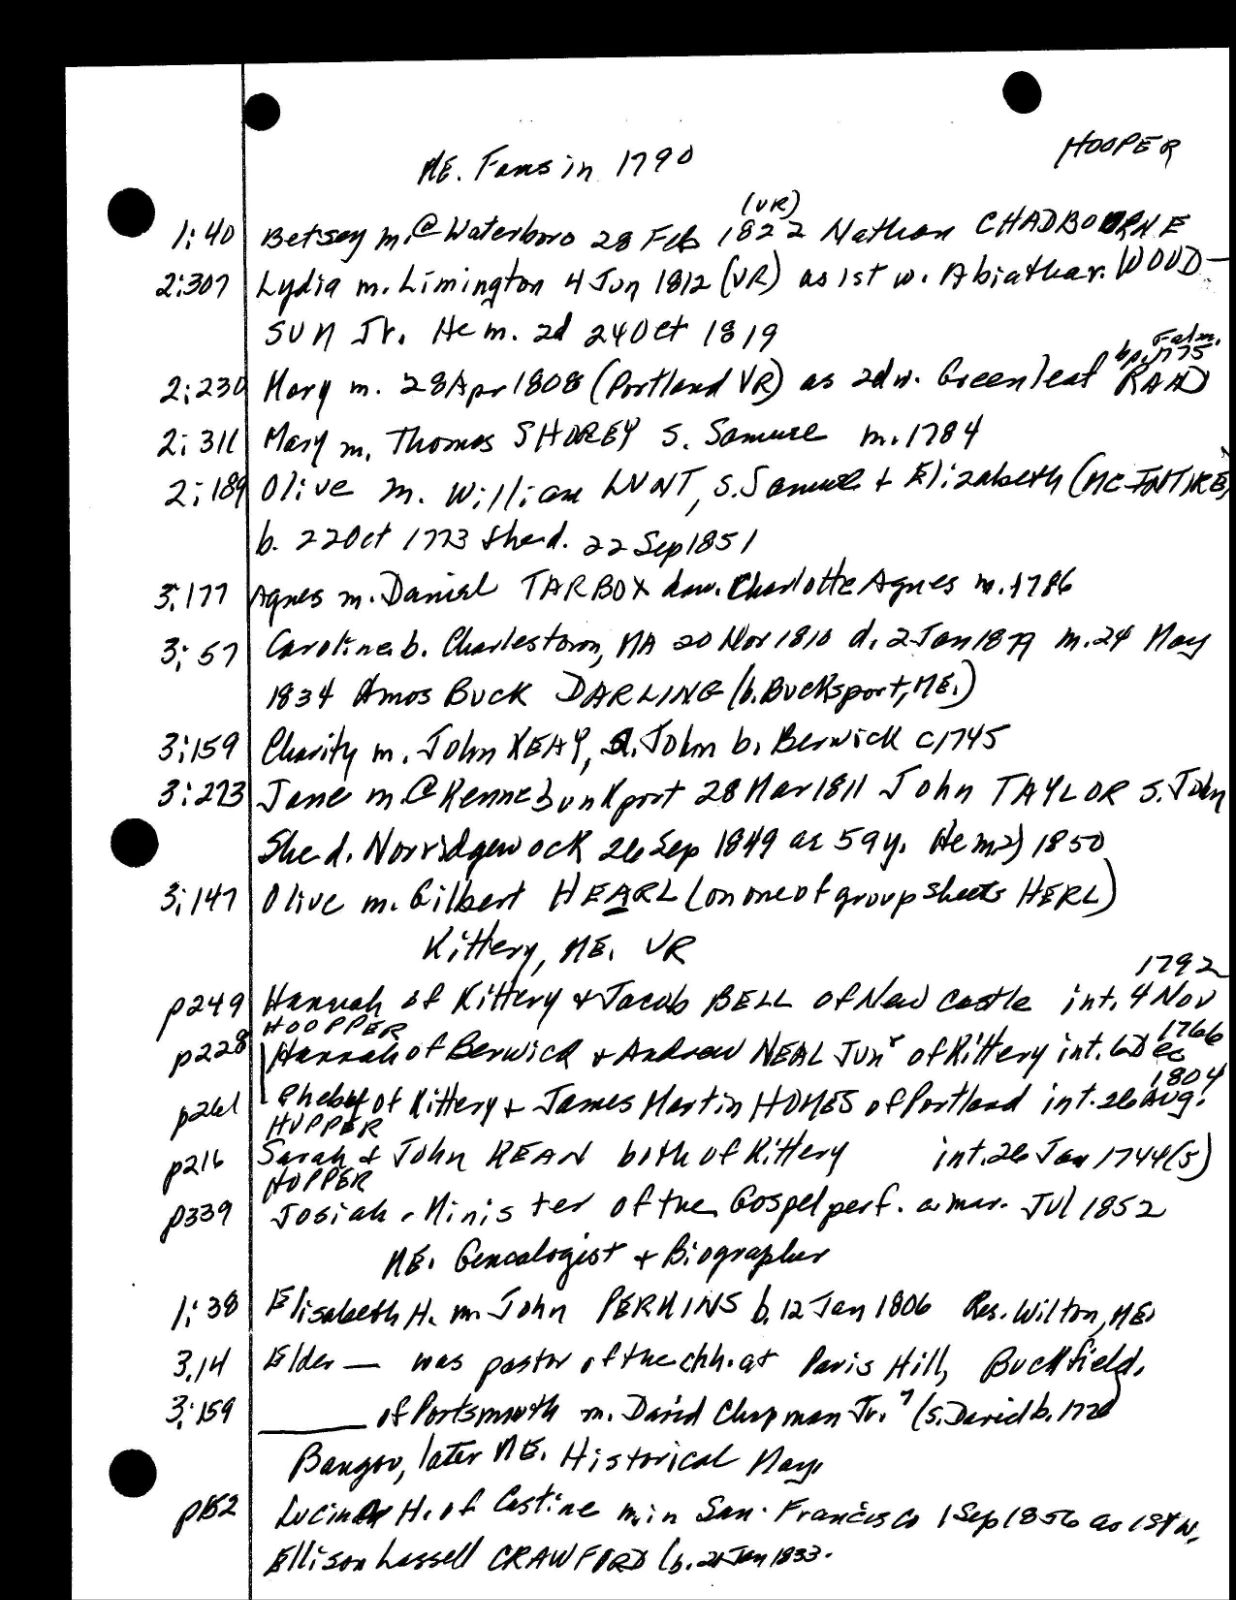 HOOPER
ME. Fams in 1790
(VR)
1:40 Betsey m. @ Waterboro 28 Feb 1822 Nathan CHADBOURNE
2:307 Lydia m. Limington 4 Jun 1812 (VR) as 1st w. Abiathar. WOOD-
SUM Jr. He m. 2d 24 Oct 1819
bp. 1775 Falm.
2:230 Mary m. 28 Apr 1808 (Portland VR) as 2d w. Greenleaf RAND
2:311 Mary m. Thomas SHOREY s. Samuel m. 1784
2:189 Olive m. William LUNT, s. Samuel + Elizabeth (MC INTIRE)
b. 22 Oct 1773 She d. 22 Sep 1851
3:177 Agnes m. Daniel TARBOX dau. Charlotte Agnes m. 1786
3:57 Caroline b. Charlestown, MA 20 Nov 1810 d. 2 Jan 1879 m. 24 May
1834 Amos Buck DARLING (b. Bucksport, ME.)
3:159 Charity m. John KEAY, s. John b. Berwick c1745
3:273 Jane m @ Kennebunkport 28 Mar 1811 John TAYLOR s. John
She d. Norridgewock 26 Sep 1849 ae 59y. He m 2) 1850
3:147 Olive m. Gilbert HEARL (on one of group sheets HERL)
Kittery, ME. VR
1792
p249 Hannah of Kittery & Jacob BELL of New Castle int. 4 Nov
HOOPPER 1766
p228 Hannah of Berwick + Andrew NEAL Junr of Kittery int. 6 Dec
1804
p261 Pheby of Kittery + James Martin HOMES of Portland int. 26 Aug.
HUPPER
p216 Sarah & John KEAN both of Kittery int. 26 Jan 1744(5)
HOPPER
p339 Josiah. Minister of the Gospel perf. a mar. Jul 1852
ME. Genealogist + Biographer
1:38 Elisabeth H. m. John PERKINS b. 12 Jan 1806 Res. Wilton, ME.
3.14 Elder — was pastor of the chh. at Paris Hill, Buckfield.
3:159 ______ of Portsmouth m. David Chapman Jr. 7 (s. David b. 1720)
Bangor, later ME. Historical Mag.
p152 Lucinda H. of Castine m. in San Francisco 1 Sep 1856 as 1st w.
Ellison Lassell CRAWFORD (b. 21 Jan 1833.